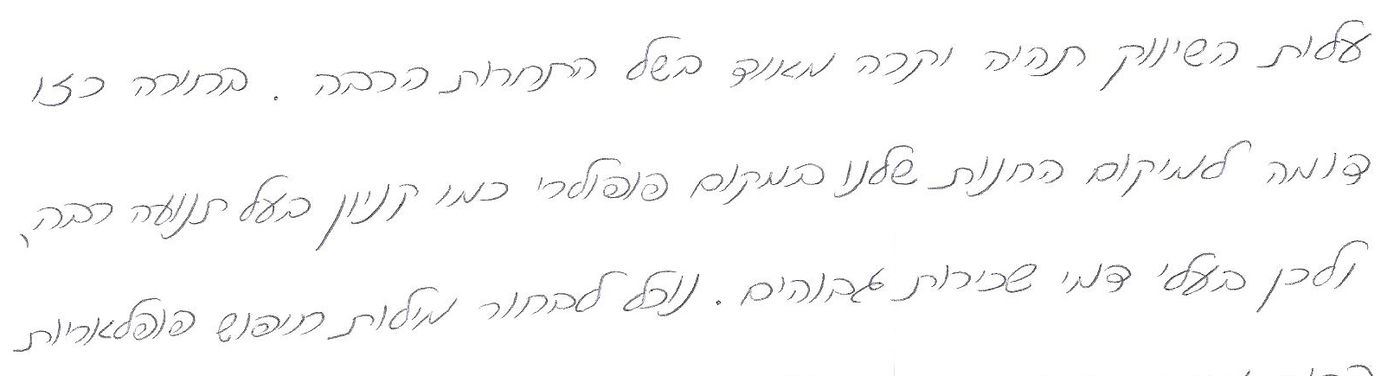 עלות השיווק תהיה יקרה מאוד בשל התחרות הרבה. בחירה כזו
דומה למיקום החנות שלנו במקום פופולרי כמו קניון בעל תנועה רבה,
ולכן בעלי דמי שכירות גבוהים. נוכל לבחור מילות חיפוש פופלאריות